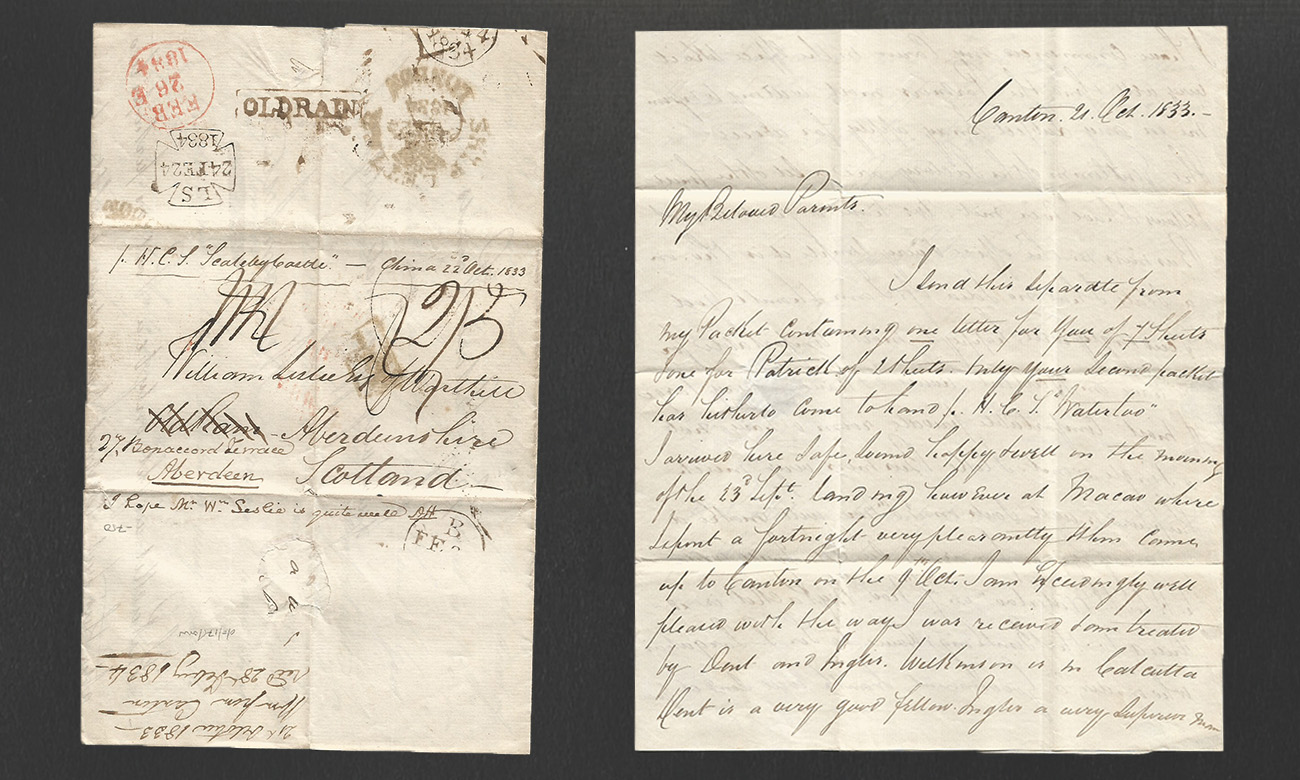 FEB
26
1834
OLDRAIN
SHIP LETTER
LONDON
LS
24FE24
1834
p. H.C.S. "Scaleby Castle" — China 22d Oct. 1833
2/5
William Leslie Esq of Warthill
Aberdeenshire
27, Bonaccord Terrace
Aberdeen Scotland
I hope Mr Wm Leslie is quite well
B
FE
21st October 1833
Canton
recd 28 Feby 1834
Canton. 21. Oct. 1833.-
My Beloved Parents.
I send this separate from
my Packet containing one letter for You of 7 Sheets
& one for Patrick of 2 Sheets. Only Your Second packet
has hitherto come to hand p. H.C.S. "Waterloo"
I arrived here safe, sound happy & well on the morning
of the 23d Sept. landing however at Macao where
I spent a fortnight very pleasantly & then came
up to Canton on the 9th Oct. I am Exceedingly well
pleased with the way I was received & am treated
by Dent and Inglis. Wilkinson is in Calcutta
Dent is a very good fellow. Inglis a very Superior man